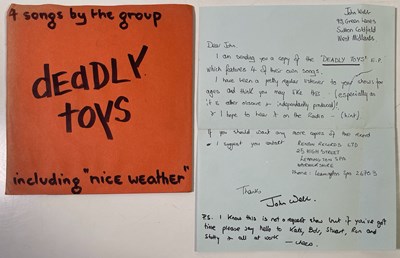 4 songs by the group
deadly
toys
including "nice weather"
John Walsh
Green Lanes
Sutton Coldfield
West Midlands
Dear John
I am sending you a copy of the "DEADLY TOYS" E.P.
which features 4 of their own songs.
I have been a pretty regular listener to your shows for
ages and think you may like this (especially as
it is other obscure or independently produced)!
I hope to hear it on the Radio - (hint)
If you should want any more copies of the record
I suggest you contact RECORDS LTD
HIGH STREET
LEAMINGTON SPA
WARWICKSHIRE
Phone: Leamington Spa
Thanks
John Walsh
P.S. I know this is not a request show but if you've got
time please say hello to Kath, Bob, Steve, Ron and
and all at work